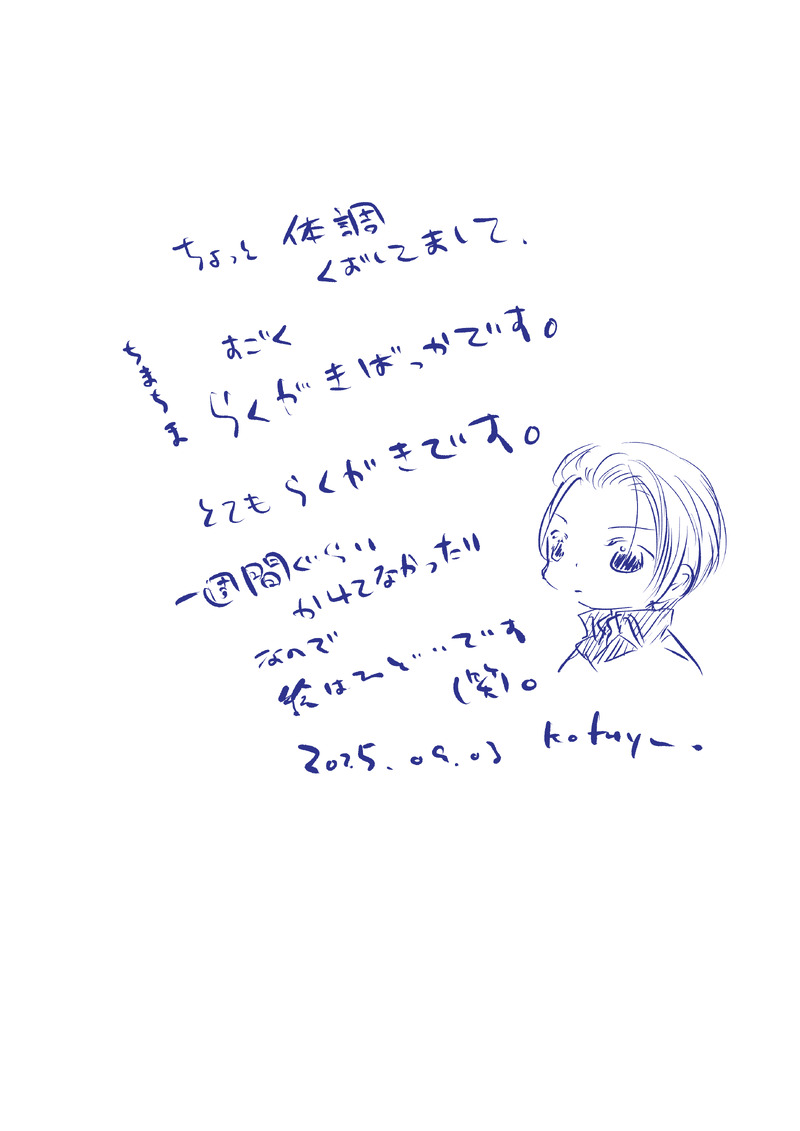 ちょっと 体調
くずしてまして、
ちまちま
すごく
らくがきばっかです。
とても らくがきです。
一週間ぐらい
かけてなかったい
なので
絵はひどいです
(笑)。
2025.09.03